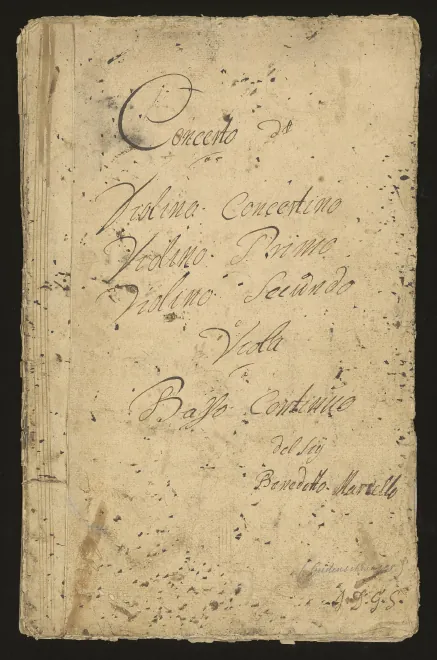 Concerto dã
Violino Concertino
Violino Primo
Violino Secundo
Viola
Basso Continuo
del Sig
Benedetto Marcello
A. D. G. S.